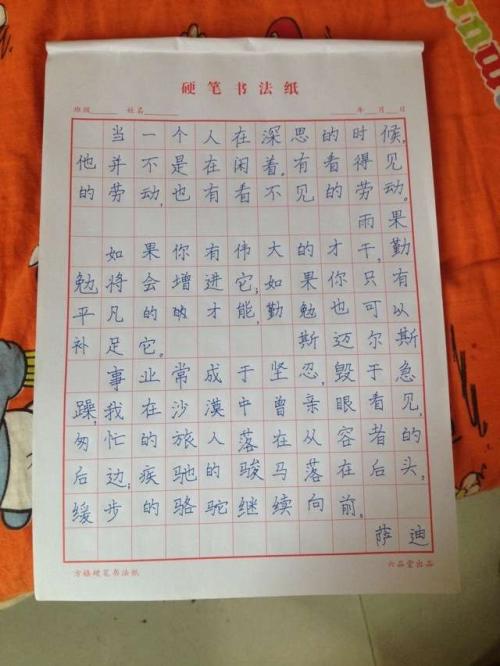 硬笔书法纸
班级 姓名 年 月 日
当一个人在深思的时候,
他并不是在闲着。有看得见
的劳动,也有看不见的劳动。
雨果
如果你有伟大的才干,勤
勉将会增进它;如果你只有
平凡的才能,勤勉也可以
补足它。
斯迈尔斯
事业常成于坚忍,毁于急
躁,我在沙漠中曾亲眼看见,
匆忙的旅人落在从容者的
后边;疾驰的骏马落在后头,
缓步的骆驼继续向前。
萨迪
方格硬笔书法纸 六品堂出品